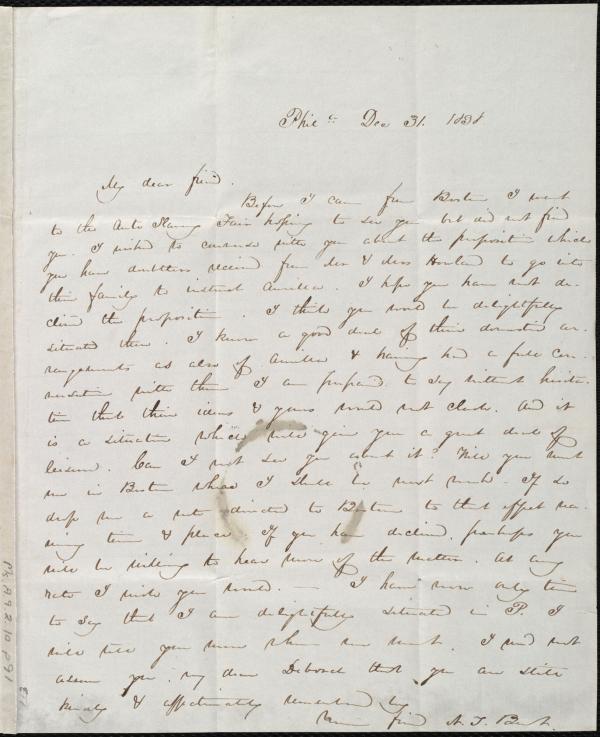 Phila Dec 31. 1838
My dear friend.
Before I came from Boston I went
to the Anti Slavery Fair hoping to see you but did not find
you. I wished to converse with you about the proposition which
you have doubtless received from Mr & Mrs Howland to go into
their family to instruct Aurelia. I hope you have not de-
clined the proposition. I think you would be delightfully
situated there. I know a good deal of their domestic ar-
rangements as also of Aurelia & having had a full con-
versation with them I am prepared to say without hesita-
tion that their ideas & yours would not clash. And it
is a situation which will give you a great deal of
leisure. Can I not see you about it? Will you meet
me in Boston where I shall be next week. If so
drop me a note directed to Boston to that effect na-
ming time & place. If you have declined, perhaps you
will be willing to hear more of the matter. At any
rate I wish you would. — I have now only time
to say that I am delightfully situated in P. I
will tell you more when we meet. I need not
assure you my dear Deborah that you are still
kindly & affectionately remembered by
Your friend
Ms. A.9.2.10. p91